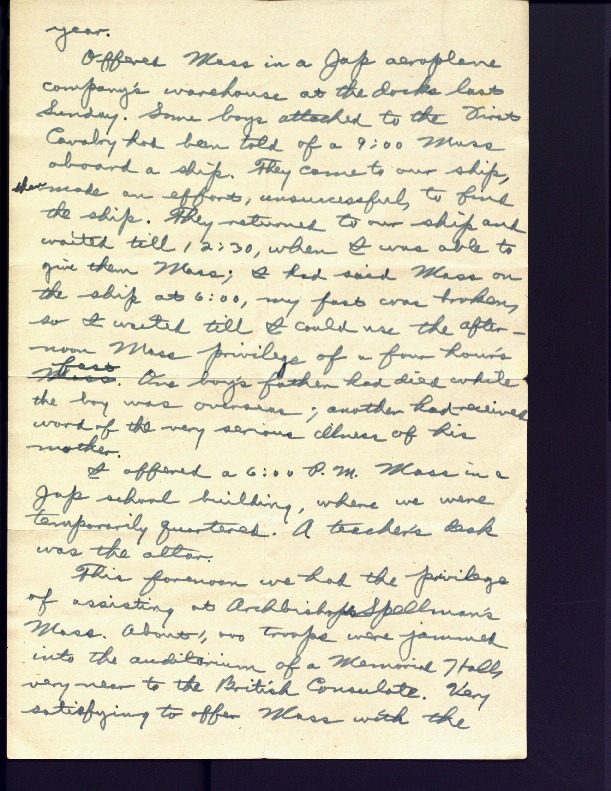 year.
Offered Mass in a Jap aeroplane
company's warehouse at the docks last
Sunday. Some boys attached to the First
Cavalry had been told of a 9:00 Mass
aboard a ship. They came to our ship,
then made an effort, unsuccessful, to find
the ship. They returned to our ship and
waited till 12:30, when I was able to
give them Mass; I had said Mass on
the ship at 6:00, my fast was broken,
so I waited till I could use the after-
noon Mass privilege of a four hour's
Mass fast. One boy's father had died while
the boy was overseas; another had received
word of the very serious illness of his
mother.
I offered a 6:00 P.M. Mass in a
Jap school building, where we were
temporarily quartered. A teacher's desk
was the altar.
This forenoon we had the privilege
of assisting at Archbishop Spellman's
Mass. About 1,000 troops were jammed
into the auditorium of a Memorial Hall,
very near to the British Consulate. Very
satisfying to offer Mass with the